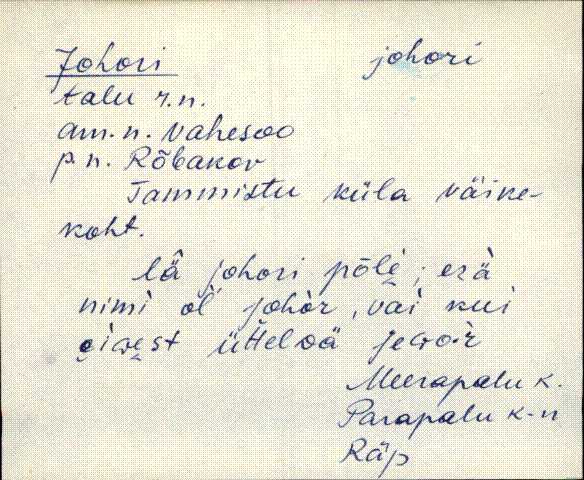 Johori johori
talu r.n.
am.n. Vahesoo
p.n. Rõbakov
Tammistu küla väike-
koht.
lä johori põle; erä
nimi ol johòr, vai kui
üttelvä
Meerapalu k.
Parapalu k-n
Räp